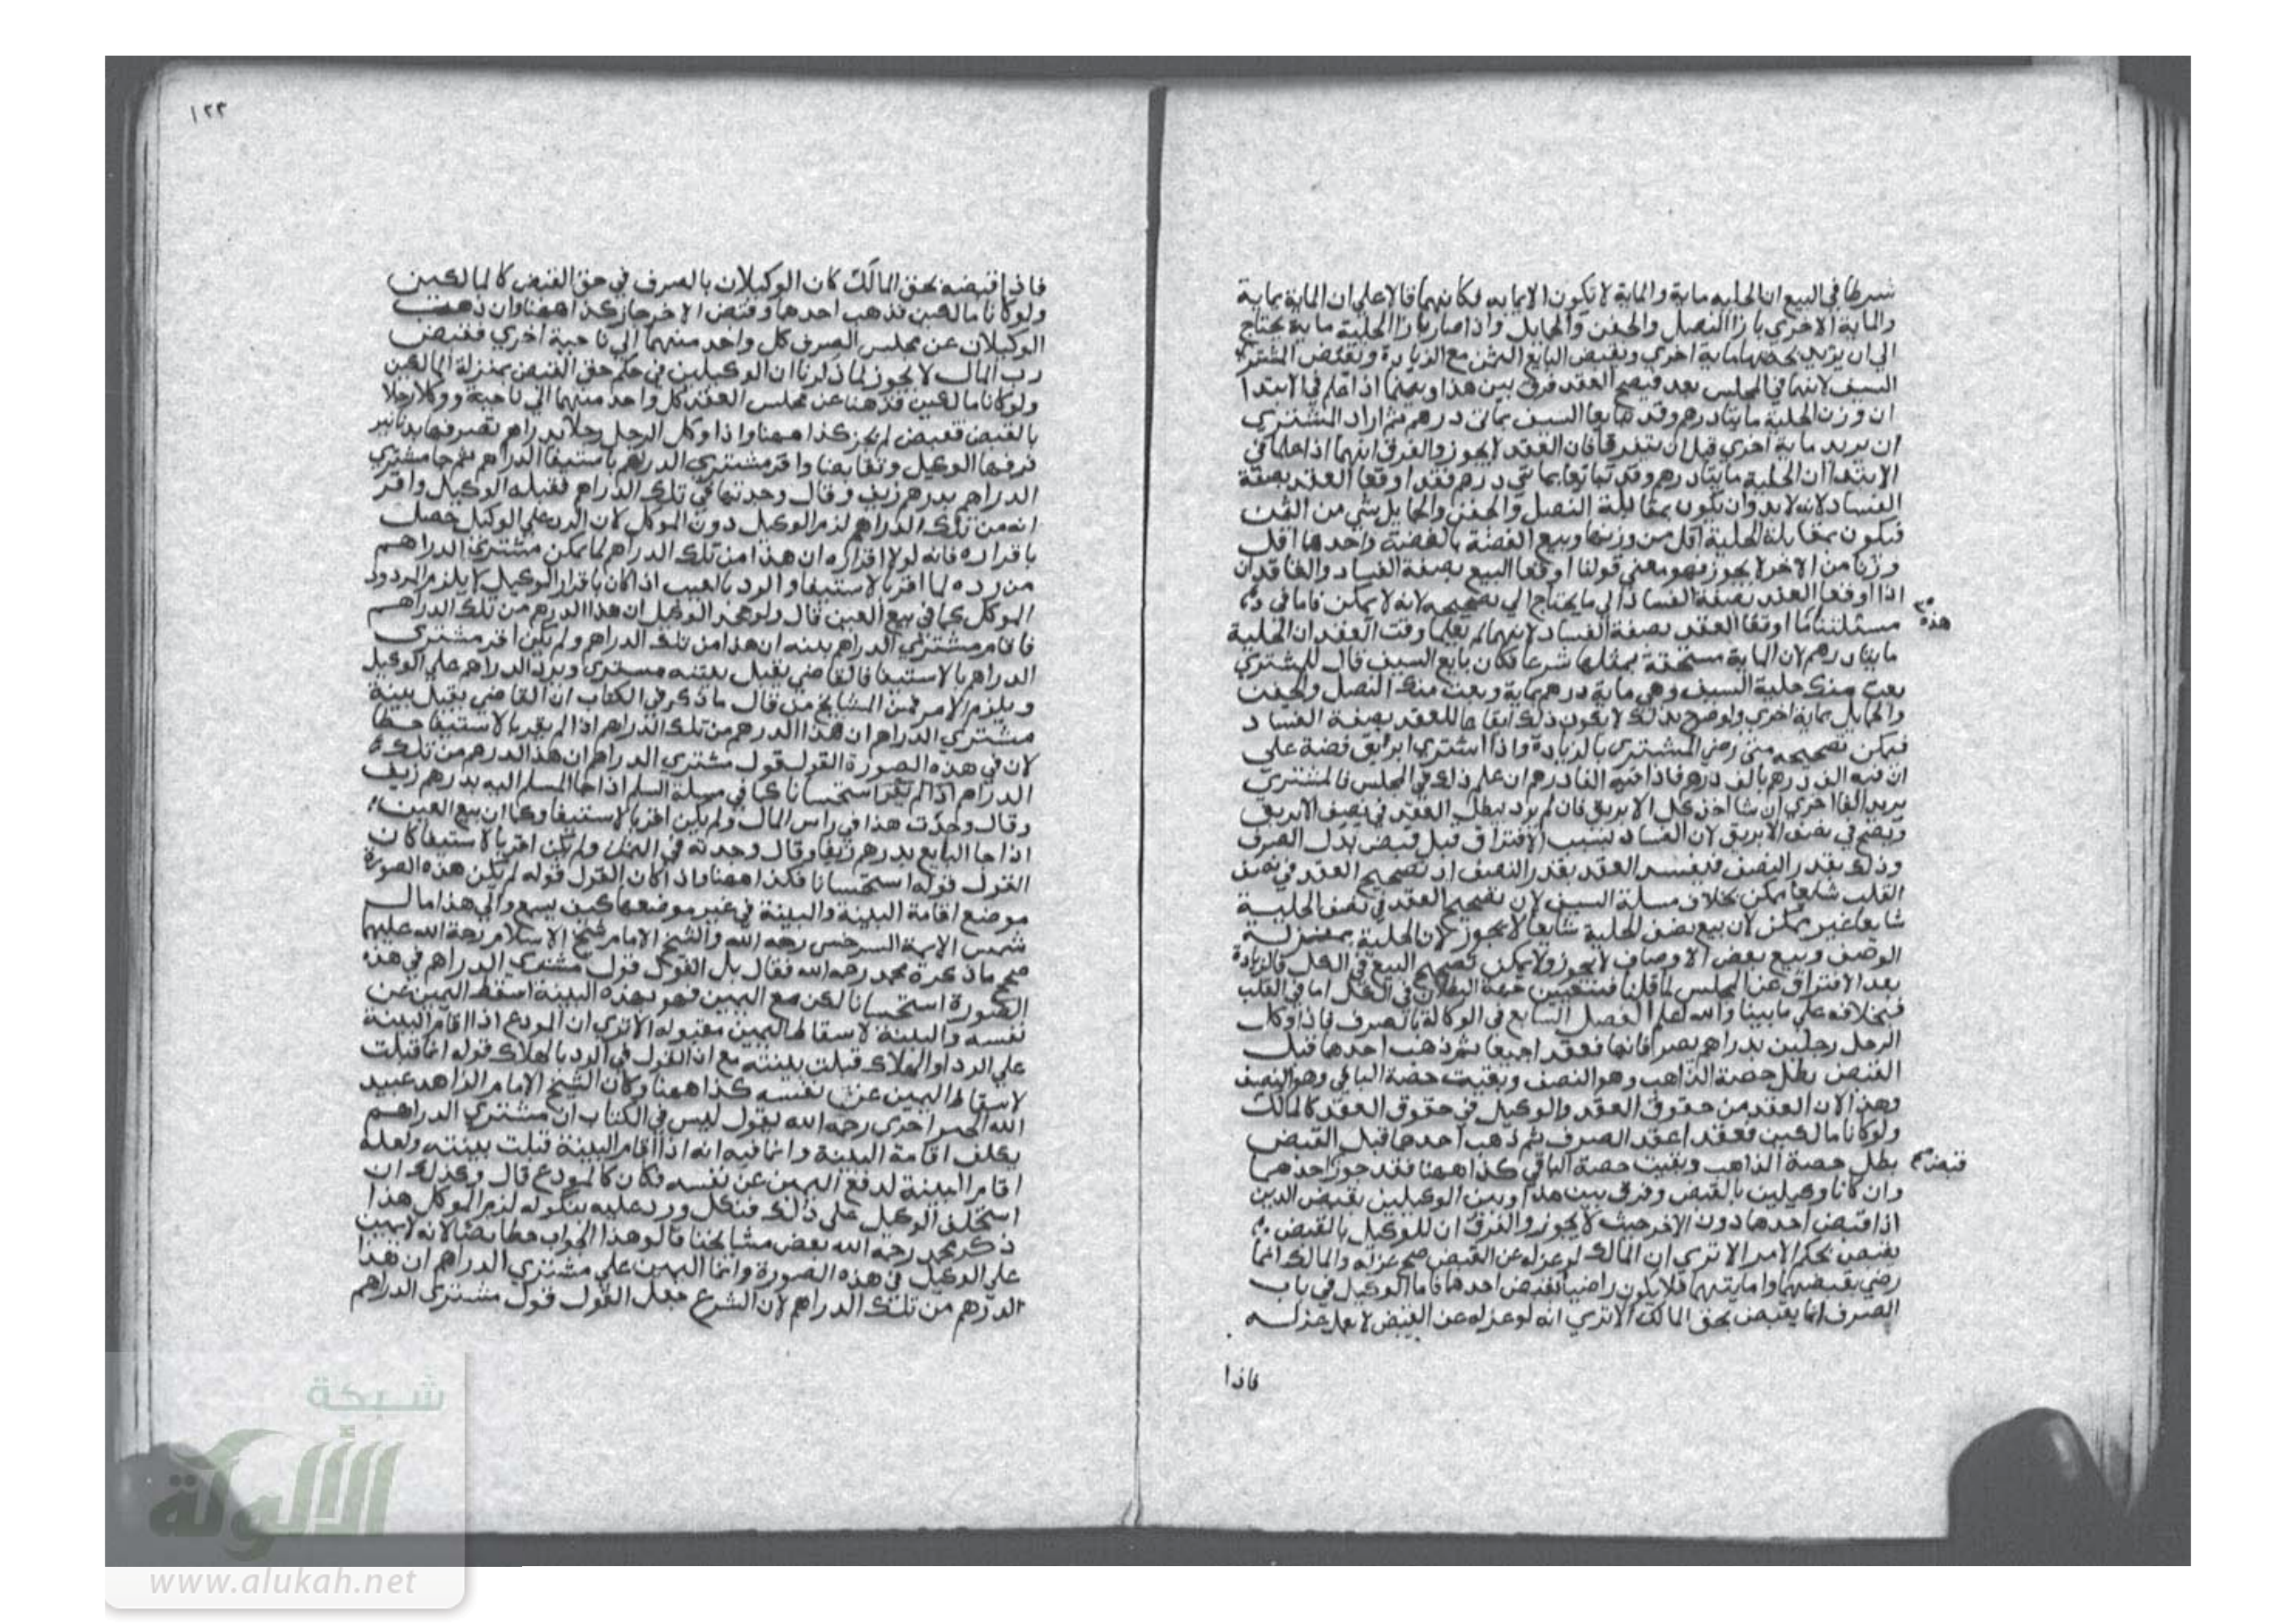 شرطا في البيع ان الحليه ماية والماية لا تكون الا بمايه فكانهما قالا علي ان الماية بماية
والماية الاخري بازا النصل والجفن والحمايل واذا صار بازا الحلية ماية يحتاج
الي ان يزيد بحصتها ماية اخري ويقبض البايع الثمن مع الزيادة ويقبض المشتري
السيف لانهما في المجلس بعد فيصح العقد فرق بين هذا وبينما اذا علم في الابتدا
ان وزن الحلية مايتا درهم وقد تبايعا السيف بمائتي درهم ثم اراد المشتري
ان يزيد ماية اخري قبل ان يتفرقا فان العقد لا يجوز والفرق انهما اذا علما في
الابتدا ان الحلية مايتا درهم وقد تبايعا بمائتي درهم فقد اوقعا العقد بصفة
الفساد لانه لابد وان يكون بمقابلة النصل والجفن والحمايل شي من الثمن
فيكون بمقابلة الحلية اقل من وزنها وبيع الفضة بالفضة واحدهما اقل
وزنا من الاخر لا يجوز فهو معني قولنا اوقعا البيع بصفة الفساد والعاقدان
اذا اوقعا العقد بصفة الفساد الي ما يحتاج الي تصحيحه لانه لا يمكن فاما في
هذه
مسئلتنا ما اوقعا العقد بصفة الفساد لانهما لم يعلما وقت العقد ان الحلية
مايتا درهم لان الماية مستحقة بمثلها شرعا فكان بايع السيف قال للمشتري
بعت منك حلية السيف وهي ماية درهم بماية وبعت منك النصل والجفن
والحمايل بماية اخري ولو صرح بذلك لا يكون ذلك ايقاعا للعقد بصفة الفساد
فيمكن تصحيحه متي رضي المشتري بالزيادة واذا اشتري ابريق فضة علي
ان فيه الف درهم بالف درهم فاذا فيه الفا درهم ان علم ذلك في المجلس فالمشتري
يزيد الفا اخري ان شا اخذ كل الابريق فان لم يزد يبطل العقد في نصف الابريق
ويصح في نصف الابريق لان الفساد بسبب الافتراق قبل قبض بدل الصرف
وذلك بقدر النصف فيفسد العقد بقدر النصف اذ تصحيح العقد في نصف
القلب شايعا يمكن بخلاف مسلة السيف لان تصحيح العقد في نصف الحلية
شايعا غير ممكن لان بيع نصف الحلية شايعا لا يجوز لان الحلية بمنزلة
الوصف وبيع بعض الاوصاف لا يجوز ولا يمكن تصحيح البيع في الكل بالزيادة
بعد الافتراق عن المجلس لما قلنا فيتعين جهة البطلان في الكل اما في القلب
فبخلافه علي ما بينا والله اعلم الفصل السابع في الوكالة بالصرف فاذا وكل
الرجل رجلين بدراهم يصرفانها فعقدا جميعا ثم ذهب احدهما قبل
القبض بطل حصة الذاهب وهو النصف وبقيت حصة الباقي وهو النصف
وهذا لان العقد من حقوق العقد والوكيل في حقوق العقد كالمالك
ولو كانا مالكين فعقدا عقد الصرف ثم ذهب احدهما قبل القبض
بطل حصة الذاهب وبقيت حصة الباقي كذا ههنا فقد جوز احدهما
قبض
وان كانا وكيلين بالقبض وفرق بين هذا وبين الوكيلين بقبض الدين
اذا قبض احدهما دون الاخر حيث لا يجوز والفرق ان للوكيل بالقبض
يقبض بحكم الامر الا تري ان المالك لو عزله عن القبض صح عزله والمالك انما
رضي بقبضهما وامانتهما فلا يكون راضيا بقبض احدهما فاما الوكيل في باب
الصرف انما يقبض بحق المالك الا تري انه لو عزله عن القبض لا يعمل عزله
فاذا
١٢٣
فاذا قبضه بحق المالك كان الوكيلان بالصرف في حق القبض كالمالكين
ولو كانا مالكين فذهب احدهما وقبض الاخر جاز كذا ههنا وان ذهب
الوكيلان عن مجلس الصرف كل واحد منهما الي ناحية اخري فقبض
رب المال لا يجوز لما ذكرنا ان الوكيلين في حكم حق القبض بمنزلة المالكين
ولو كانا مالكين فذهبا عن مجلس العقد كل واحد منهما الي ناحية ووكلا رجلا
بالقبض فقبض لم يجز كذا ههنا واذا وكل الرجل رجلا بدراهم يصرفها بدنانير
فصرفها الوكيل وتقابضا واقر مشتري الدراهم باستيفا الدراهم ثم جا مشتري
الدراهم بدرهم زيف وقال وجدتها في تلك الدراهم فقبله الوكيل واقر
انه من تلك الدراهم لزم الوكيل دون الموكل لان الرد علي الوكيل حصل
باقراره فانه لولا اقراره ان هذا من تلك الدراهم لما يمكن مشتري الدراهم
من رده لما اقر بالاستيفا والرد بالعيب اذا كان باقرار الوكيل لا يلزم المردود
الموكل كما في بيع العين قال ولو جحد الوكيل ان هذا الدرهم من تلك الدراهم
فاقام مشتري الدراهم بينه ان هذا من تلك الدراهم ولم يكن اقر مشتري
الدراهم بالاستيفا فالقاضي يقبل بينته مشتري ويرد الدراهم علي الوكيل
ويلزم الامر فمن المشايخ من قال ما ذكر في الكتاب ان القاضي يقبل بينة
مشتري الدراهم ان هذا الدرهم من تلك الدراهم اذا لم يقر بالاستيفا خطا
لان في هذه الصورة القول قول مشتري الدراهم ان هذا الدرهم من تلك
الدراهم اذا لم يقر استحسانا كما في مسلة السلم اذا جا المسلم اليه بدرهم زيف
وقال وجدت هذا في راس المال ولم يكن اقر بالاستيفا وكما ان بيع العين
اذا جا البايع بدرهم زيفا وقال وجدته في الثمن ولم يكن اقر بالاستيفا كان
القول قوله استحسانا فكذا ههنا واذا كان القول قوله لم يكن هذه الصورة
موضع اقامة البينة والبينة في غير موضعها كيف يسمع والي هذا مال
شمس الايمة السرخسي رحمه الله والشيخ الامام شيخ الاسلام رحمة الله عليهما
صحح ما ذكره محمد رحمه الله فقال بل القول قول مشتري الدراهم في هذه
الصورة استحسانا لكن مع اليمين فهو بهذه البينة اسقط اليمين عن
نفسه والبينة لاسقاط اليمين مقبوله الا تري ان المودع اذا اقام البينة
علي الرد او الهلاك قبلت بينته مع ان القول في الرد بالهلاك قوله انما قبلت
لاسقاط اليمين عن نفسه كذا ههنا وكان الشيخ الامام الزاهد عبيد
الله رحمه الله يقول ليس في الكتاب ان مشتري الدراهم
يكلف اقامة البينة وانما فيه انه اذا اقام البينة قبلت بينته ولعله
اقام البينة لدفع اليمين عن نفسه فكان كالمودع قال وكذلك ان
استحلف الوكيل علي ذلك فنكل ورد عليه بنكوله لزم الموكل هذا
ذكر محمد رحمه الله بعض مشايخنا قالو وهذا الجواب خطا ايضا لانه لا يمين
علي الوكيل في هذه الصورة وانما اليمين علي مشتري الدراهم ان هذا
الدرهم من تلك الدراهم لان الشرع جعل القول قول مشتري الدراهم
شبكة
الألوكة
www.alukah.net